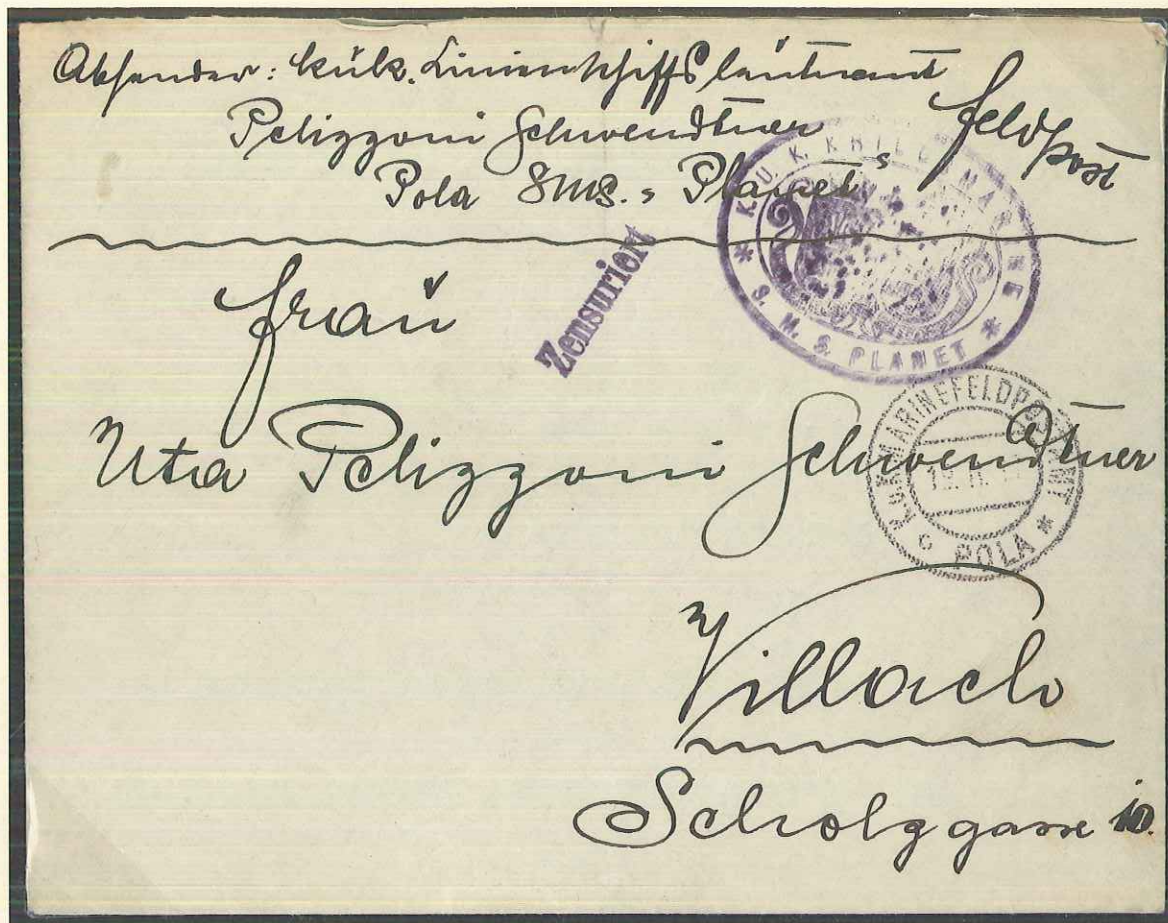 Absender: k.u.k. Linienschiffsleutnant
Pelizzoni Schwendtner
Feldpost
Pola SMS. "Planet"
Zensuriert
* K. U. K. KRIEGSMARINE *
S. M. S. PLANET
Frau
Uta Pelizzoni Schwendtner
K.u.K. MARINEFELDPOSTAMT
c POLA *
Villach
Scholzgasse 10.